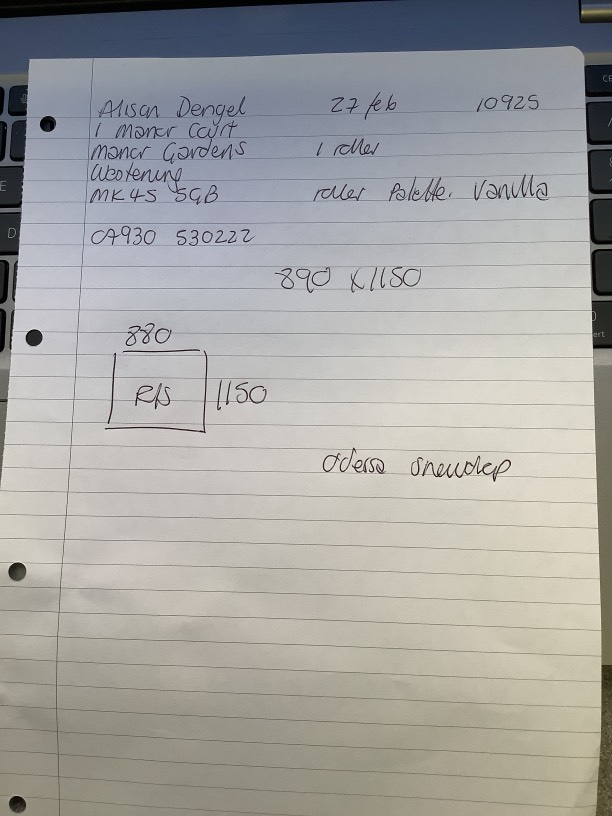 Alison Dengel 27 feb 10925
1 manor Court
manor Gardens 1 roller
Westening
MK45 5GB roller Palette. Vanilla
07930 530222
890 x 1150
880
R/S 1150
odessa snowdrop